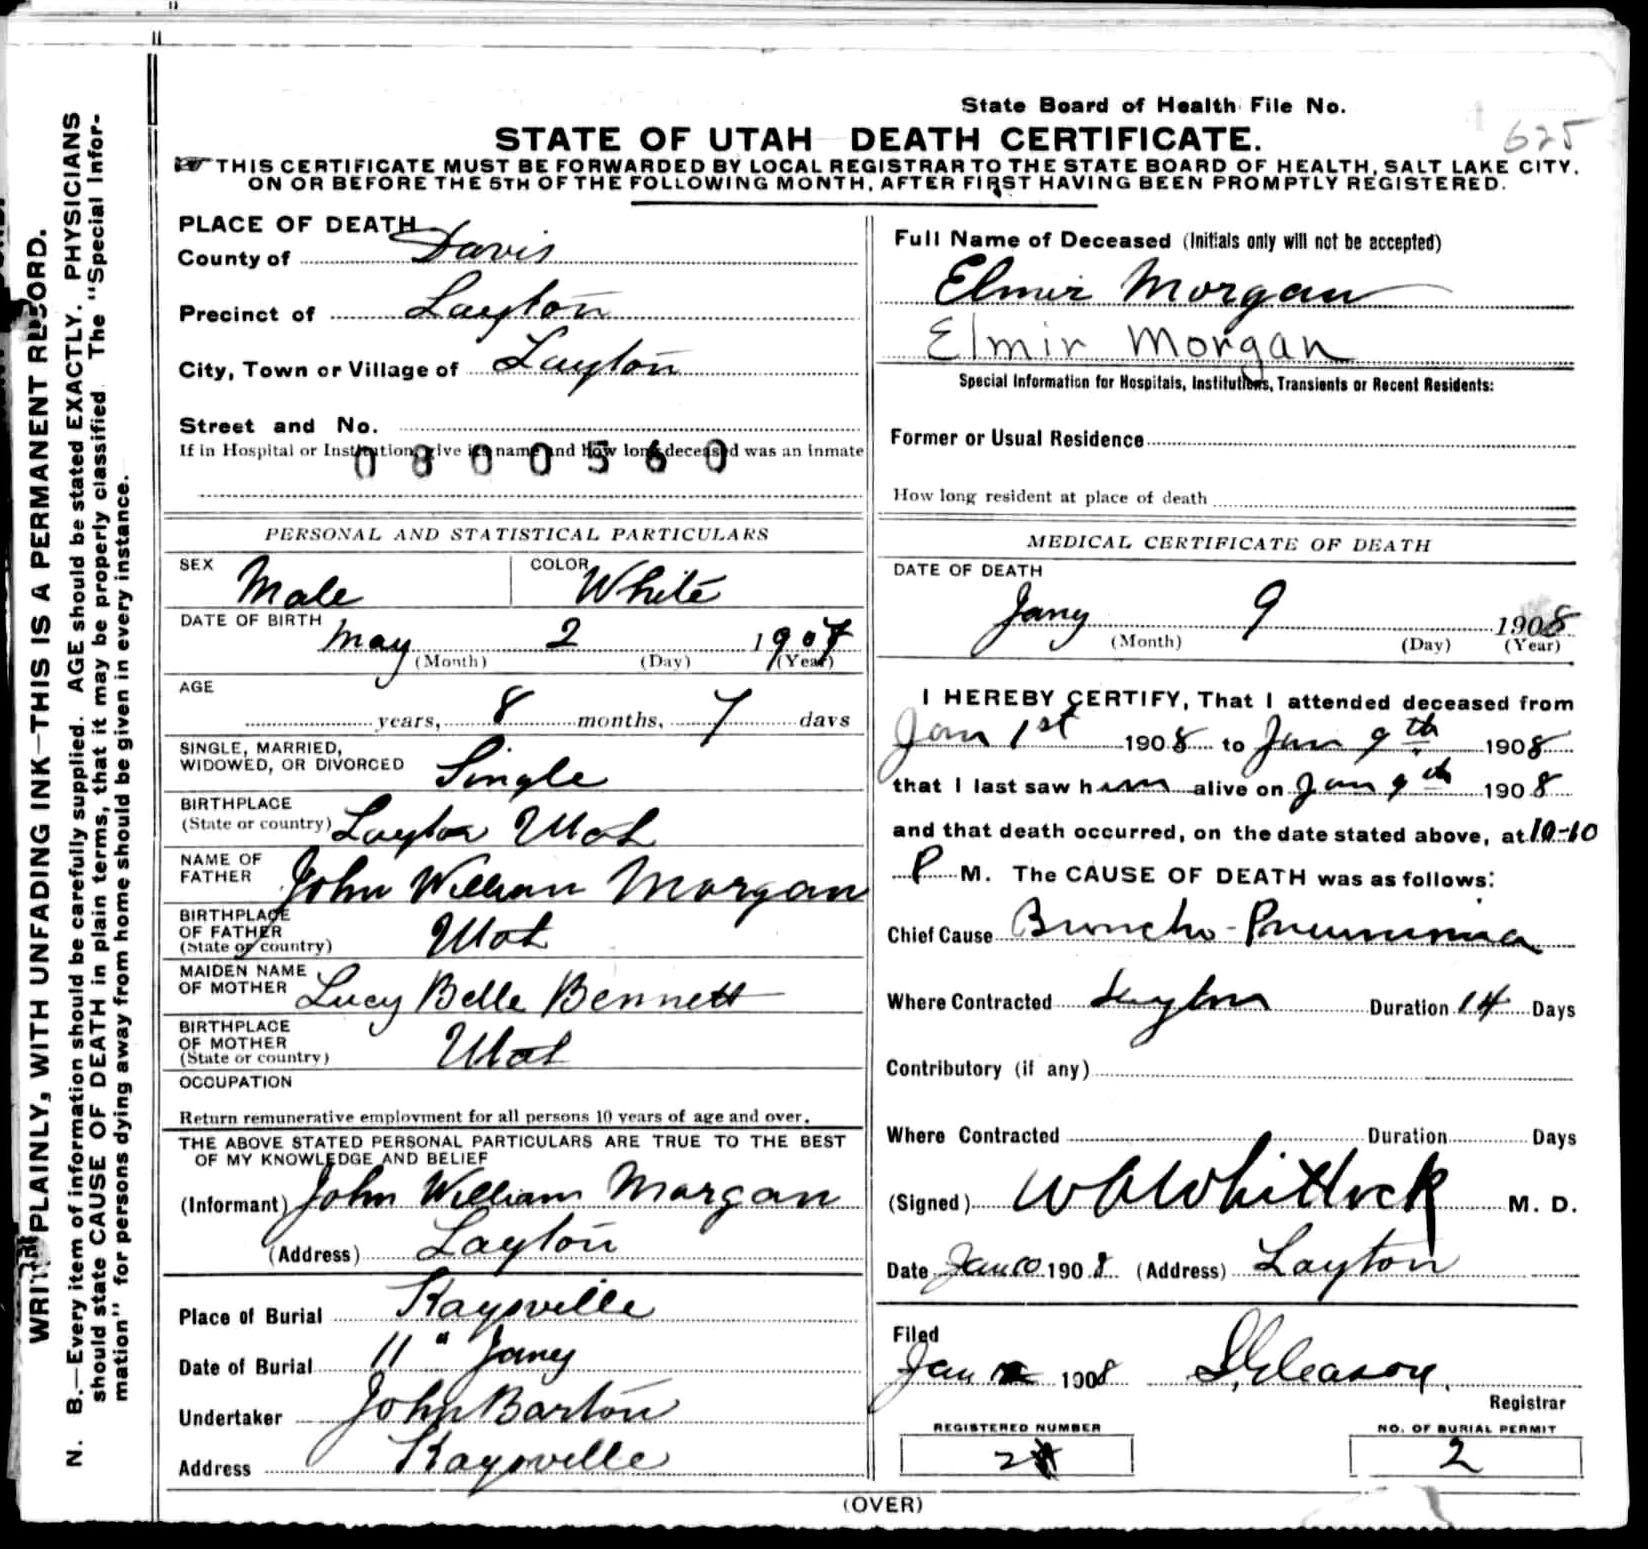 State Board of Health File No.
625
STATE OF UTAH DEATH CERTIFICATE.
THIS CERTIFICATE MUST BE FORWARDED BY LOCAL REGISTRAR TO THE STATE BOARD OF HEALTH, SALT LAKE CITY,
ON OR BEFORE THE 5TH OF THE FOLLOWING MONTH, AFTER FIRST HAVING BEEN PROMPTLY REGISTERED.
WRITE PLAINLY, WITH UNFADING INK—THIS IS A PERMANENT RECORD.
N. B.—Every item of information should be carefully supplied. AGE should be stated EXACTLY. PHYSICIANS
should state CAUSE OF DEATH in plain terms, that it may be properly classified. The "Special Infor-
mation" for persons dying away from home should be given in every instance.
PLACE OF DEATH
County of Davis
Precinct of Layton
City, Town or Village of Layton
Street and No.
If in Hospital or Institution, give its name and how long deceased was an inmate
0800560
PERSONAL AND STATISTICAL PARTICULARS
SEX Male COLOR White
DATE OF BIRTH May 2 1907
(Month) (Day) (Year)
AGE
years, 8 months, 7 days
SINGLE, MARRIED,
WIDOWED, OR DIVORCED Single
BIRTHPLACE
(State or country) Layton Utah
NAME OF
FATHER John William Morgan
BIRTHPLACE
OF FATHER
(State or country) Utah
MAIDEN NAME
OF MOTHER Lucy Belle Bennett
BIRTHPLACE
OF MOTHER
(State or country) Utah
OCCUPATION
Return remunerative employment for all persons 10 years of age and over.
THE ABOVE STATED PERSONAL PARTICULARS ARE TRUE TO THE BEST
OF MY KNOWLEDGE AND BELIEF
(Informant) John William Morgan
(Address) Layton
Place of Burial Kaysville
Date of Burial 11 " Jany
Undertaker John Barton
Address Kaysville
Full Name of Deceased (Initials only will not be accepted)
Elmir Morgan
Elmir Morgan
Special Information for Hospitals, Institutions, Transients or Recent Residents:
Former or Usual Residence
How long resident at place of death
MEDICAL CERTIFICATE OF DEATH
DATE OF DEATH
Jany 9 1908
(Month) (Day) (Year)
I HEREBY CERTIFY, That I attended deceased from
Jan 1st 1908 to Jan 9th 1908
that I last saw him alive on Jan 9th 1908
and that death occurred, on the date stated above, at 10-10
P M. The CAUSE OF DEATH was as follows:
Chief Cause Broncho-Pneumonia
Where Contracted Layton Duration 14 Days
Contributory (if any)
Where Contracted Duration Days
(Signed) Whitlock M. D.
Date Jan 10 1908 (Address) Layton
Filed
Jan 1908 Gleason
Registrar
REGISTERED NUMBER
2
NO. OF BURIAL PERMIT
2
(OVER)